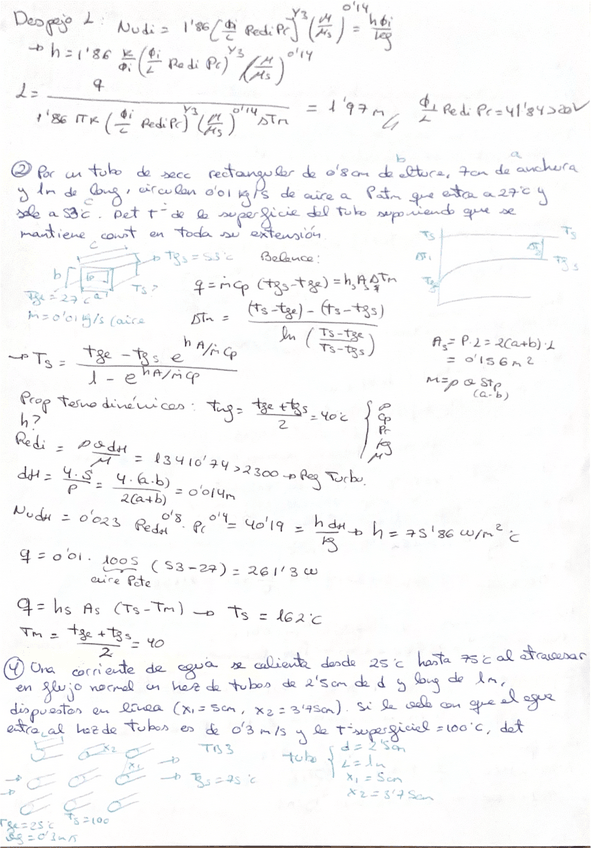 Despejo L: Nudi = 1'86 (φi/L Redi Pr)^1/3 (μ/μs)^0'14 = hφi/kg
→ h = 1'86 k/φi (φi/L Redi Pr)^1/3 (μ/μs)^0'14
L = q / (1'86 π k (φi/L Redi Pr)^1/3 (μ/μs)^0'14 ΔTm) = 1'97 m // φi/L Redi Pr = 41'84 > 2 ✓
② Por un tubo de secc rectangular de 0'8 cm de altura, 7cm de anchura
y 1m de long, circulan 0'01 kg/s de aire a Patm que entra a 27ºc y
sale a 53ºc. Det Tª de la superficie del tubo suponiendo que se
mantiene const en toda su extensión
b
a
c
c
b
a
Tgs = 53ºc
Ts =
Tge = 27ºc
m = 0'01 kg/s (aire
Ts
Ts
Tge
Tgs
Balance:
q = ṁ Cp (tgs - tge) = hs As ΔTm
ΔTm = ((Ts - tge) - (Ts - tgs)) / ln (Ts - tge / Ts - tgs)
As = P·L = 2(a+b)·L
= 0'156 m²
→ Ts = (tge - tgs e^(hA/ṁCp)) / (1 - e^(hA/ṁCp))
(a·b)
Prop termodinámicas: tmg = (tge + tgs)/2 = 40ºc { ρ Cp Pr kg μ
h?
Redi = ρ υ dH / μ = 13410'74 > 2300 → Reg Turbu.
dH = 4·S/P = 4·(a·b)/2(a+b) = 0'014m
NudH = 0'023 RedH^0'8 · Pr^0'4 = 40'19 = h dH/kg → h = 75'86 w/m² ºc
q = 0'01 · 1005 (53-27) = 261'3 w
aire Pcte
q = hs As (Ts - Tm) → Ts = 162ºc
Tm = (tge + tgs)/2 = 40
④ Una corriente de agua se calienta desde 25ºc hasta 75ºc al atravesar
en flujo normal un haz de tubos de 2'5cm de d y long de 1m,
dispuestos en línea (x1 = 5cm, x2 = 3'75cm). Si la veloc con que el agua
entra al haz de tubos es de 0'3 m/s y la Tª superficial = 100ºc, det
x2
x1
Tgs = 75ºc
Tge = 25ºc
Ts = 100
tubo { d = 2'5cm
L = 1m
x1 = 5cm
x2 = 3'75cm